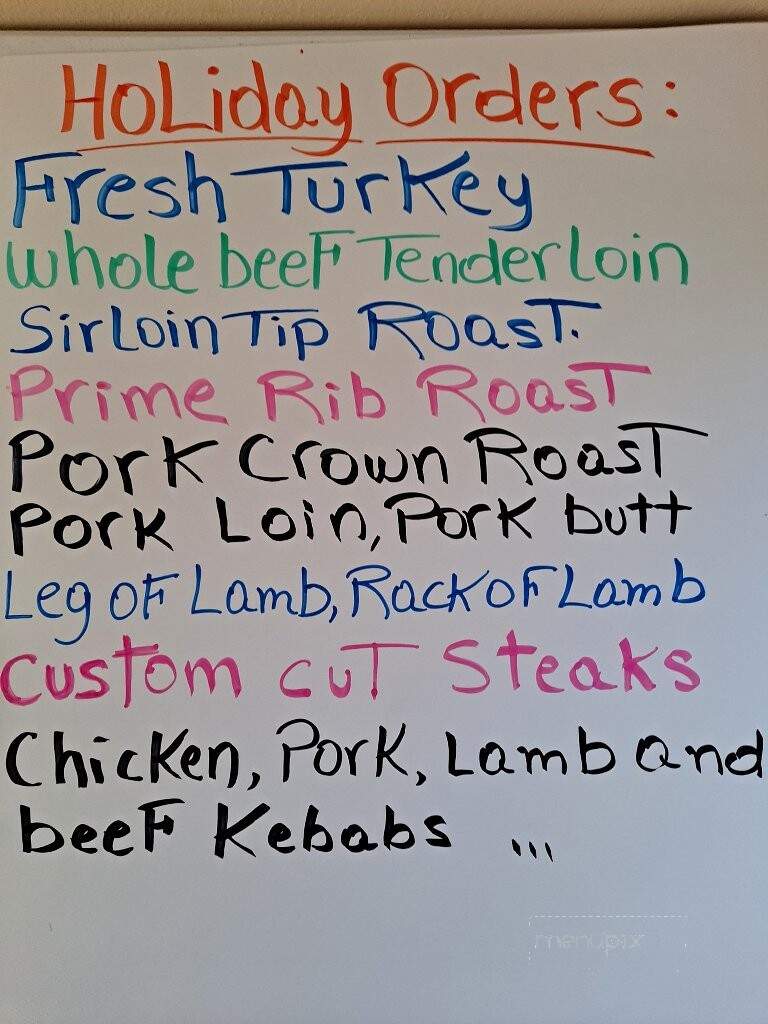 HoLiday Orders:
Fresh Turkey
Whole beeF Tenderloin
SirLoin Tip RoasT.
Prime Rib RoasT
Pork Crown RoasT
Pork Loin, Pork butt
Leg oF Lamb, Rack oF Lamb
Custom cuT Steaks
Chicken, Pork, Lamb and
beeF Kebabs ...
menupix